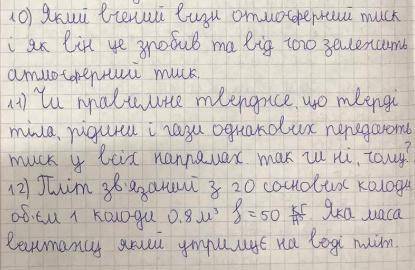 10) Який вчений визн атмосферний тиск
і як він це зробив та від чого залежить
атмосферний тиск.
11) Чи правильне твердже, що тверді
тіла, рідини і гази однакових передають
тиск у всіх напрямах так чи ні, чому?
12) Пліт зв'язаний з 20 соснових колод
об'єм 1 колоди 0.8 м³ = 50 Яка маса
вантажу який утримує на воді пліт.